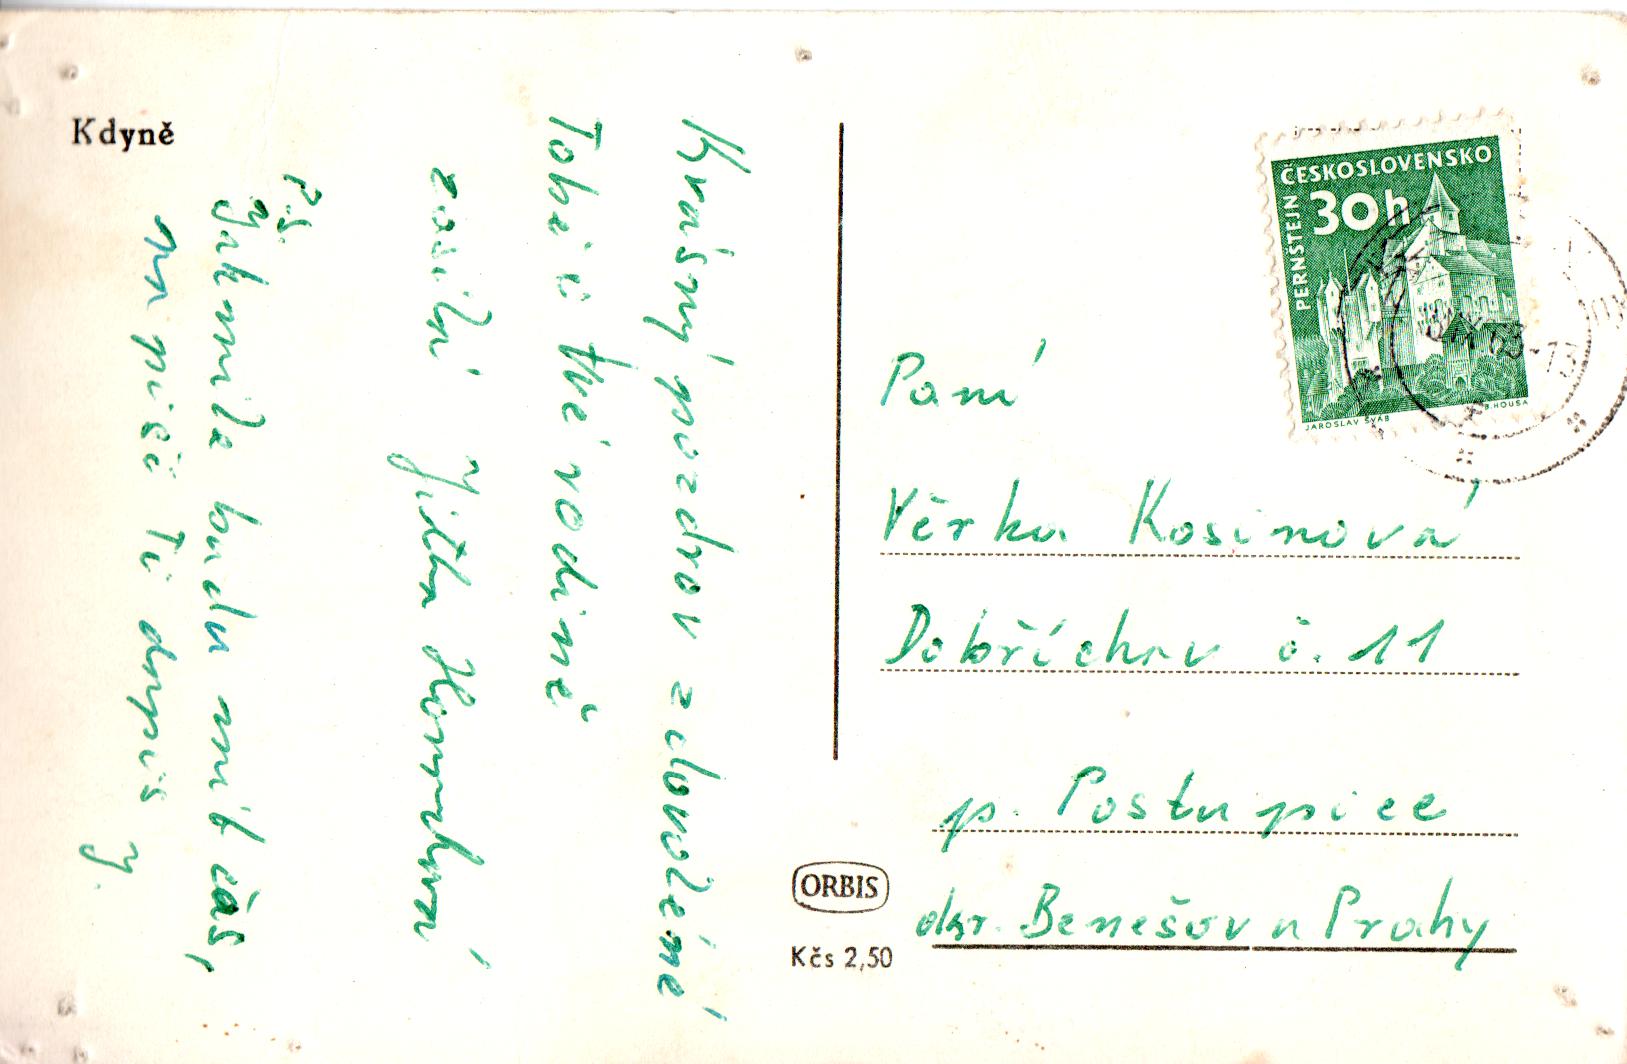 Kdyně
Krásný pozdrav z dovolené
Tobě i tvé rodině
zasílá Jitka
P.S.
Jakmile budu mít čas,
napíši Ti dopis
J.
ČESKOSLOVENSKO
30h
PERNŠTEJN
JAROSLAV ŠVÁB
B. HOUSA
63-13
Paní
Věrka Kosinová
Dobříchov č. 11
p. Postupice
okr. Benešov u Prahy
ORBIS
Kčs 2,50